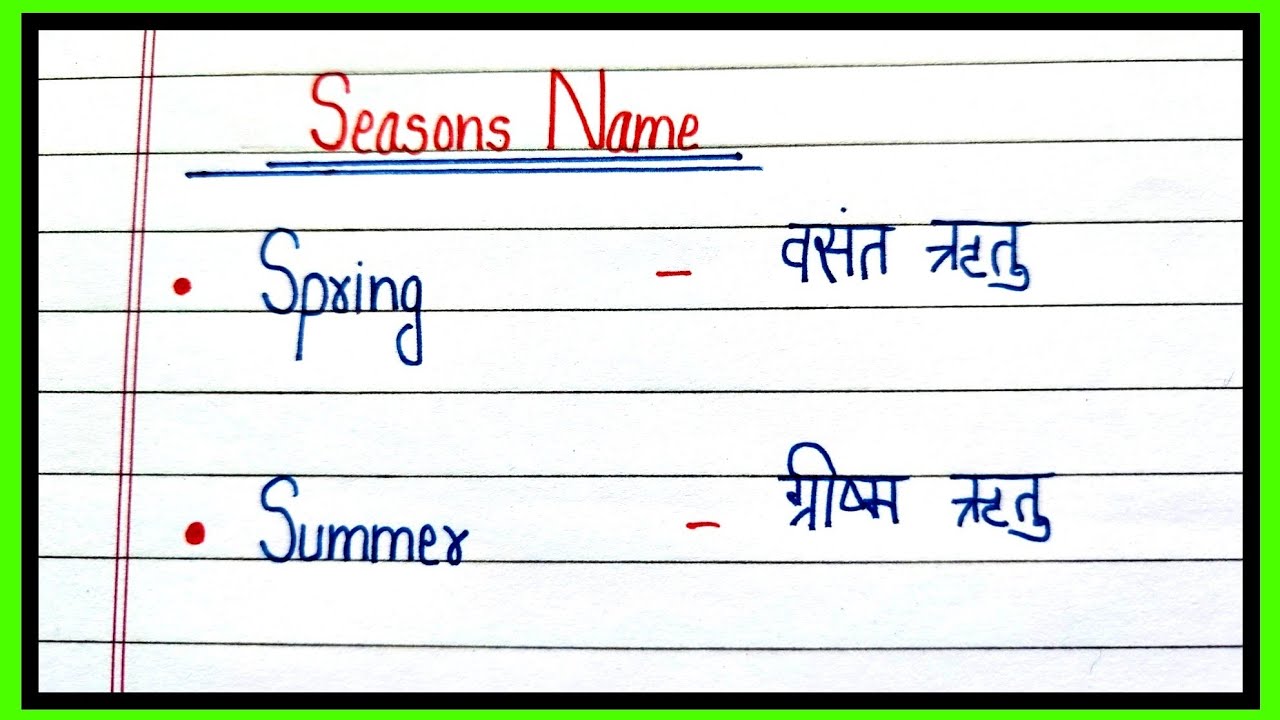 Seasons Name
• Spring - वसंत ऋतु
• Summer - ग्रीष्म ऋतु